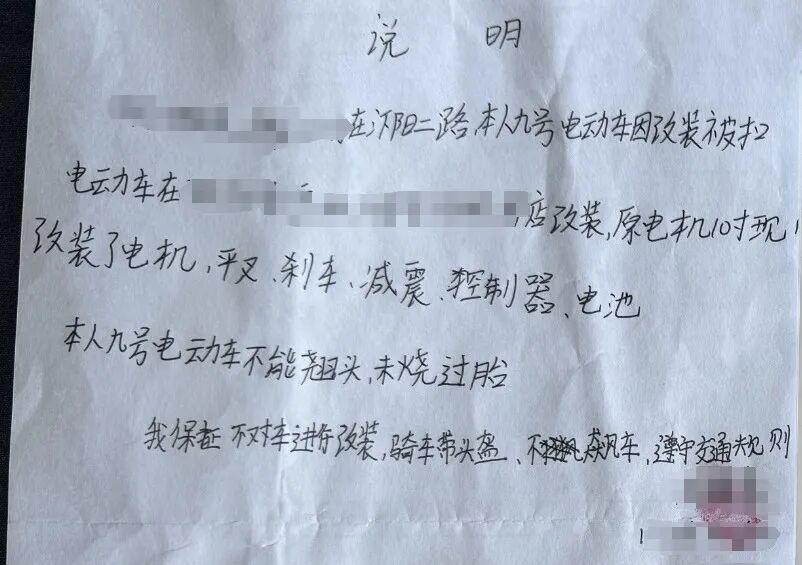 说 明
在汴阳二路本人九号电动车因改装被扣
电动车在
店改装,原电机10寸现1
改装了电机,平叉、刹车、减震、控制器、电池
本人九号电动车不能翘头,未烧过胎
我保证不对车进行改装,骑车带头盔、不飙车,遵守交通规则